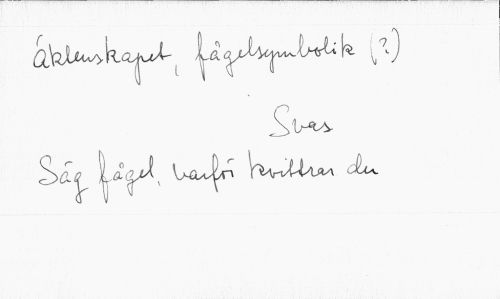 Äktenskapet, fågelsymbolik (?)
Svas
Säg fågel, varför kvittrar du